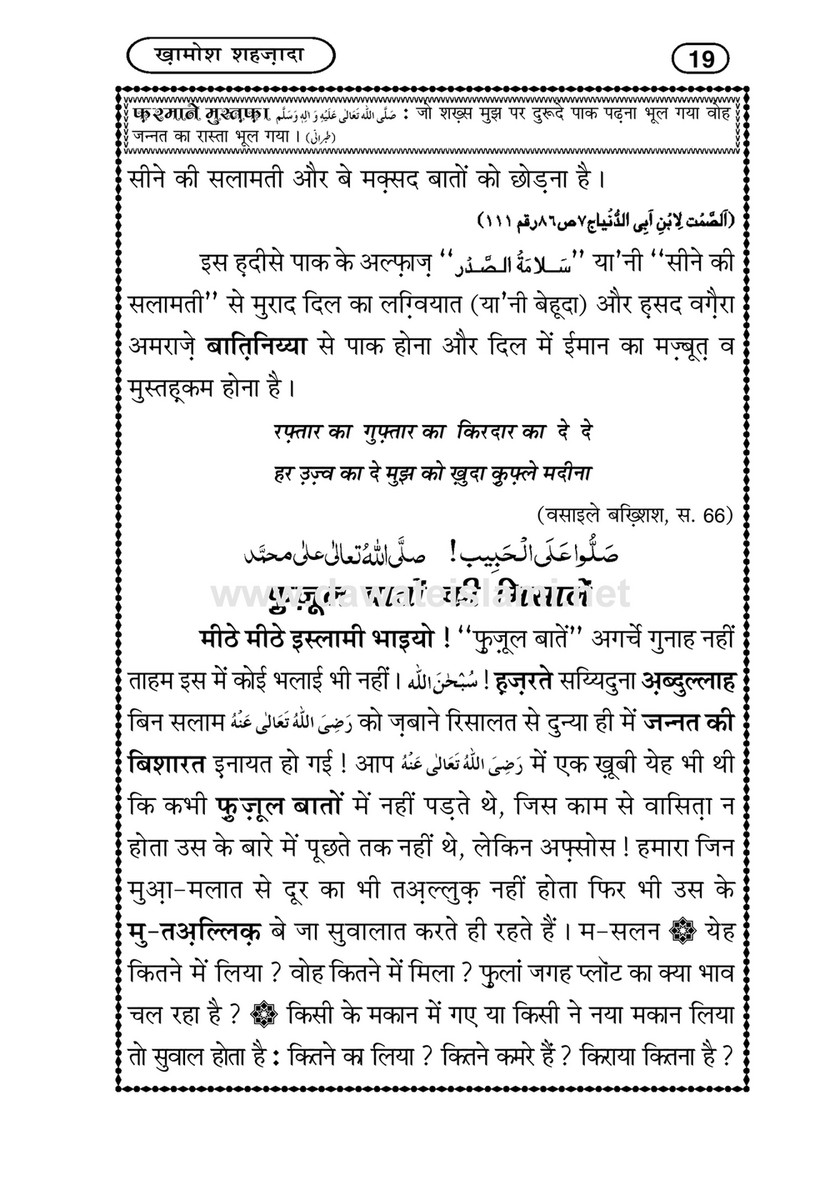 ख़ामोश शहज़ादा
19
फ़रमाने मुस्तफ़ा صَلَّى اللهُ تَعَالٰى عَلَيْهِ وَاٰلِهٖ وَسَلَّم : जो शख़्स मुझ पर दुरूदे पाक पढ़ना भूल गया वोह
जन्नत का रास्ता भूल गया । (طبرانی)
सीने की सलामती और बे मक़्सद बातों को छोड़ना है ।
(اَلصَّمْت لِابْنِ اَبِی الدُّنْیاج۷ص۸۶رقم ۱۱۱)
इस ह़दीसे पाक के अल्फ़ाज़ ‘‘سَـلَامَةُ الـصَّـدْر’’ या’नी ‘‘सीने की
सलामती’’ से मुराद दिल का लग़्वियात (या’नी बेहूदा) और ह़सद वग़ैरा
अमराज़े बात़िनिय्या से पाक होना और दिल में ईमान का मज़्बूत़ व
मुस्तह़्कम होना है ।
रफ़्तार का गुफ़्तार का किरदार का दे दे
हर उ़ज़्व का दे मुझ को ख़ुदा क़ुफ़्ले मदीना
(वसाइले बख़्शिश, स. 66)
صَلُّوا عَلَى الْحَبِيب! صلَّى اللهُ تعالٰى على محمَّد
फ़ुज़ूल बातों की मिसालें
www.dawateislami.net
मीठे मीठे इस्लामी भाइयो ! ‘‘फ़ुज़ूल बातें’’ अगर्चे गुनाह नहीं
ताहम इस में कोई भलाई भी नहीं । سُبْحٰنَ الله ! ह़ज़रते सय्यिदुना अ़ब्दुल्लाह
बिन सलाम رَضِىَ اللهُ تَعَالٰى عَنْهُ को ज़बाने रिसालत से दुन्या ही में जन्नत की
बिशारत इनायत हो गई ! आप رَضِىَ اللهُ تَعَالٰى عَنْهُ में एक ख़ूबी येह भी थी
कि कभी फ़ुज़ूल बातों में नहीं पड़ते थे, जिस काम से वासित़ा न
होता उस के बारे में पूछते तक नहीं थे, लेकिन अफ़्सोस ! हमारा जिन
मुआ़-मलात से दूर का भी तअ़ल्लुक़ नहीं होता फिर भी उस के
मु-तअ़ल्लिक़ बे जा सुवालात करते ही रहते हैं । म-सलन ۞ येह
कितने में लिया ? वोह कितने में मिला ? फ़ुलां जगह प्लॉट का क्या भाव
चल रहा है ? ۞ किसी के मकान में गए या किसी ने नया मकान लिया
तो सुवाल होता है : कितने का लिया ? कितने कमरे हैं ? किराया कितना है ?